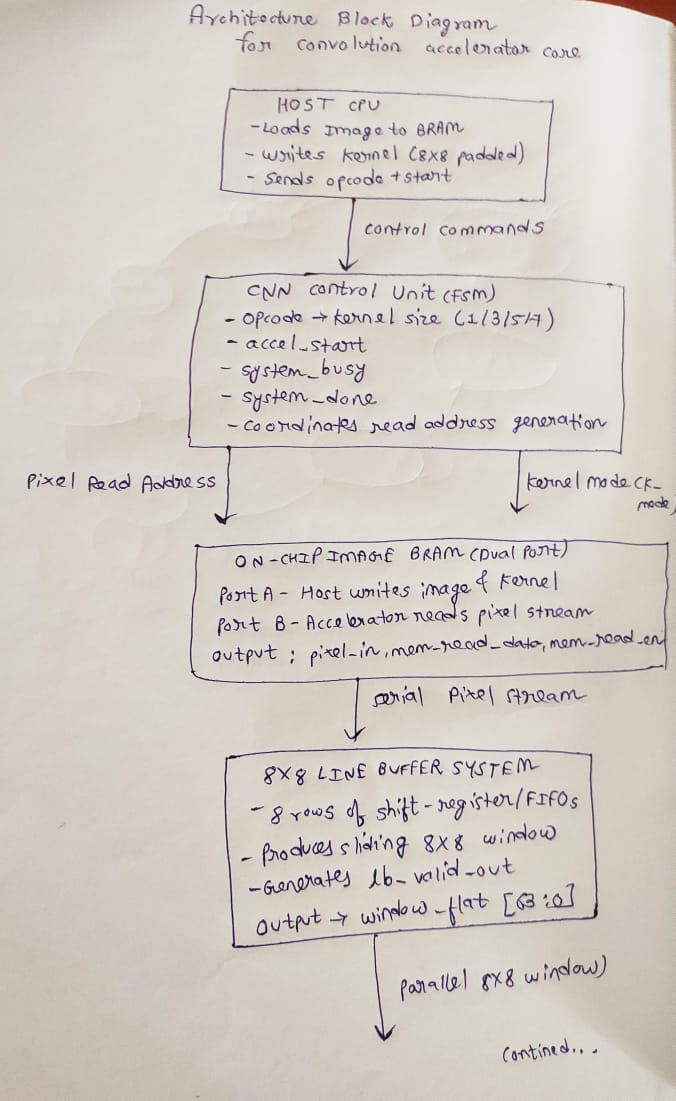 Architecture Block Diagram
for convolution accelerator core
HOST CPU
- Loads Image to BRAM
- writes kernel (8x8 padded)
- Sends opcode + start
control commands
CNN control Unit (FSM)
- opcode → kernel size (1/3/5/7)
- accel_start
- system_busy
- system_done
- coordinates read address generation
Pixel Read Address
kernel mode (K_
mode)
ON-CHIP IMAGE BRAM (Dual Port)
Port A - Host writes image & kernel
Port B - Accelerator reads pixel stream
output : pixel_in, mem_read_data, mem_read_en
serial Pixel stream
8X8 LINE BUFFER SYSTEM
- 8 rows of shift-register/FIFOs
- Produces sliding 8X8 window
- Generates lb_valid_out
output → window_flat [63:0]
parallel 8X8 window)
contined...